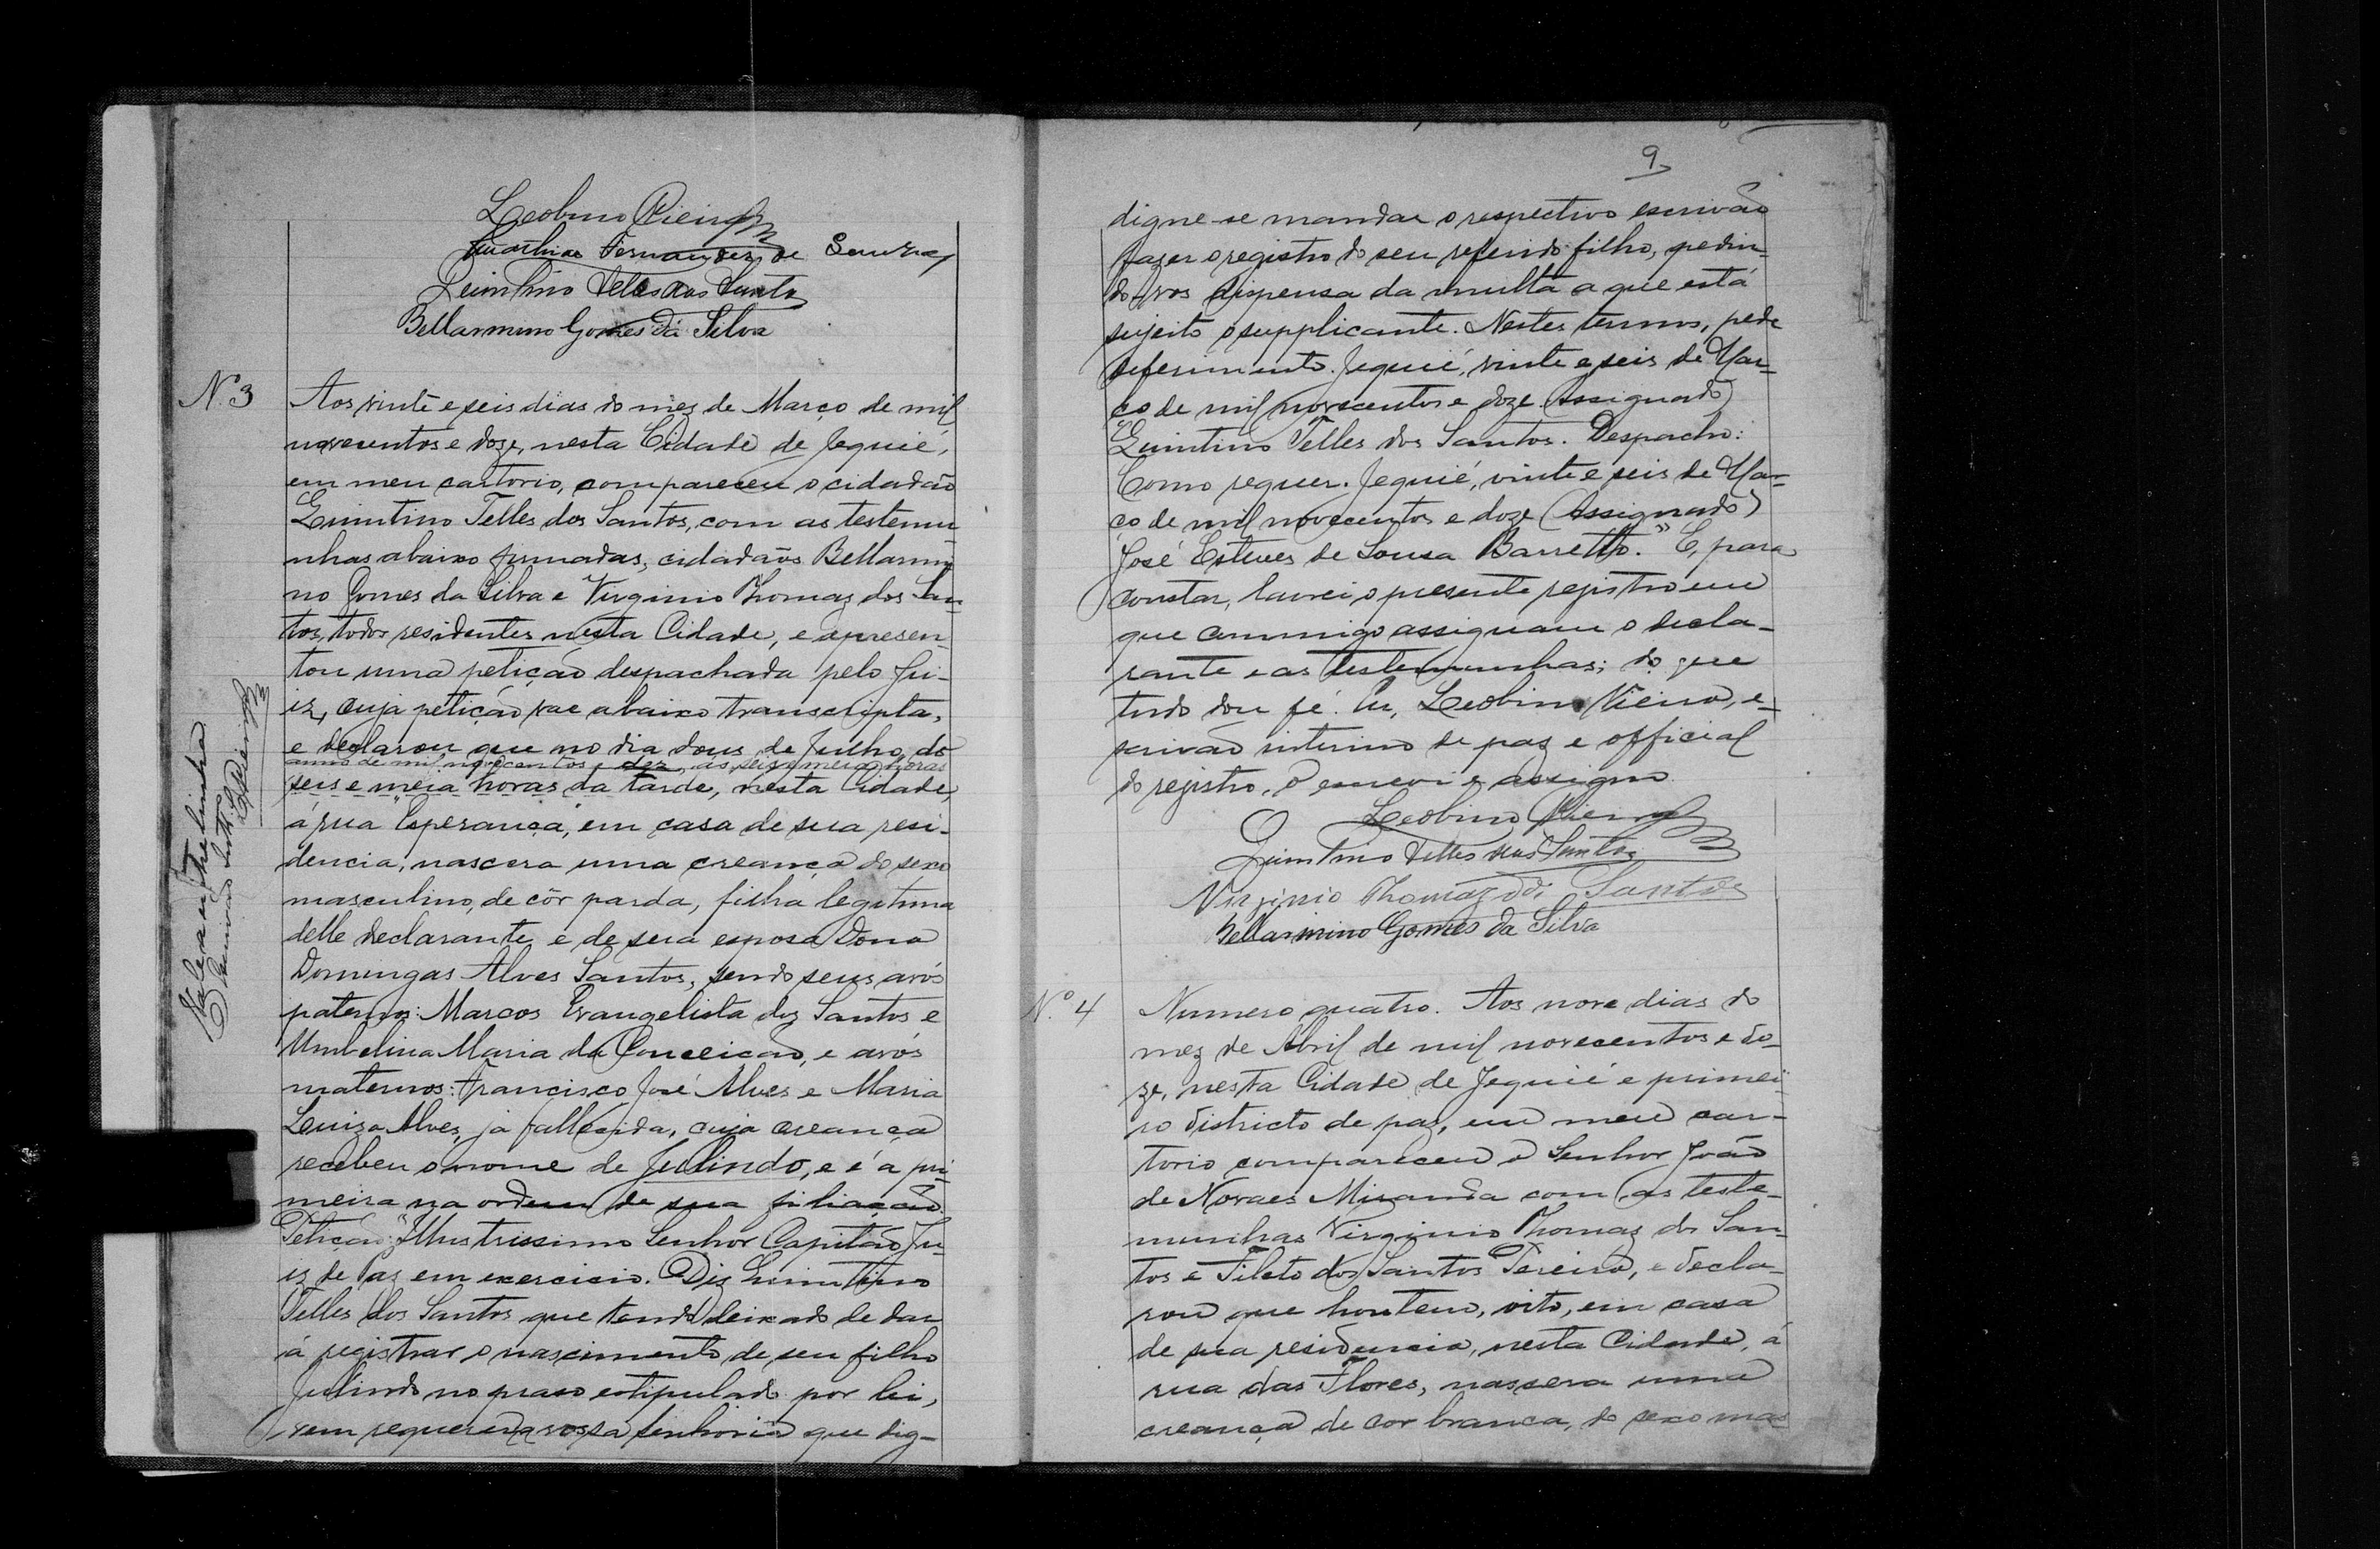 Leobino Vieira
Fernandes de Souza
Quintino Telles dos Santos
Bellarmino Gomes da Silva
N.º 3
Aos vinte e seis dias do mez de Março de mil
novecentos e doze, nesta Cidade de Jequié,
em meu cartorio, compareceu o cidadão
Quintino Telles dos Santos, com as testemu-
nhas abaixo firmadas, cidadãos Bellarmi-
no Gomes da Silva e Virginio Thomaz dos San-
tos, todos residentes nesta Cidade, e apresen-
tou uma petição despachada pelo Ju-
iz, cuja petição vae abaixo transcripta,
e declarou que no dia dous de Julho do
anno de mil novecentos e dez, ás seis e meia horas
seis e meia horas da tarde, nesta Cidade,
á rua Esperança, em casa de sua resi-
dencia, nascera uma creança do sexo
masculino, de côr parda, filha legitima
delle declarante e de sua esposa Dona
Domingas Alves Santos, sendo seus avós
paternos: Marcos Evangelista dos Santos e
Umbelina Maria da Conceição, e avós
maternos: Francisco José Alves e Maria
Luiza Alves, já fallecida, cuja creança
recebeu o nome de Julindo, e é a pri-
meira na ordem de sua filiação.
Petição: "Illustrissimo Senhor Capitão Ju-
iz de Paz em exercicio. Diz Quintino
Telles dos Santos que tendo deixado de dar
á registrar o nascimento de seu filho
Julindo no praso estipulado por lei,
vem requerer a vossa senhoria que dig-
Vale a entrelinha
Escrivão Intº LVieira
9
digne-se mandar o respectivo escrivão
fazer o registro do seu referido filho, pedin-
do-vos dispensa da multa a que está
sujeito o supplicante. Nestes termos, pede
deferimento. Jequié, vinte e seis de Mar-
ço de mil novecentos e doze. (Assignado)
Quintino Telles dos Santos. Despacho:
Como requer. Jequié, vinte e seis de Mar-
ço de mil novecentos e doze (Assignado)
José Esteves de Sousa Barretto." E, para
constar, lavrei o presente registro em
que commigo assignam o decla-
rante e as testemunhas; do que
tudo dou fé. Eu, Leobino Vieira, e-
scrivão interino de paz e official
do registro, o escrevi e assigno.
Leobino Vieira
Quintino Telles dos Santos
Virginio Thomaz dos Santos
Bellarmino Gomes da Silva
N.º 4
Numero quatro. Aos nove dias do
mez de Abril de mil novecentos e do-
ze, nesta Cidade de Jequié e primei-
ro districto de paz, em meu car-
torio compareceu o Senhor João
de Novaes Miranda com as teste-
munhas Virginio Thomaz dos San-
tos e Fileto dos Santos Pereira, e decla-
rou que hontem, oito, em casa
de sua residencia, nesta Cidade, á
rua das Flores, nascera uma
creança de cor branca, do sexo mas